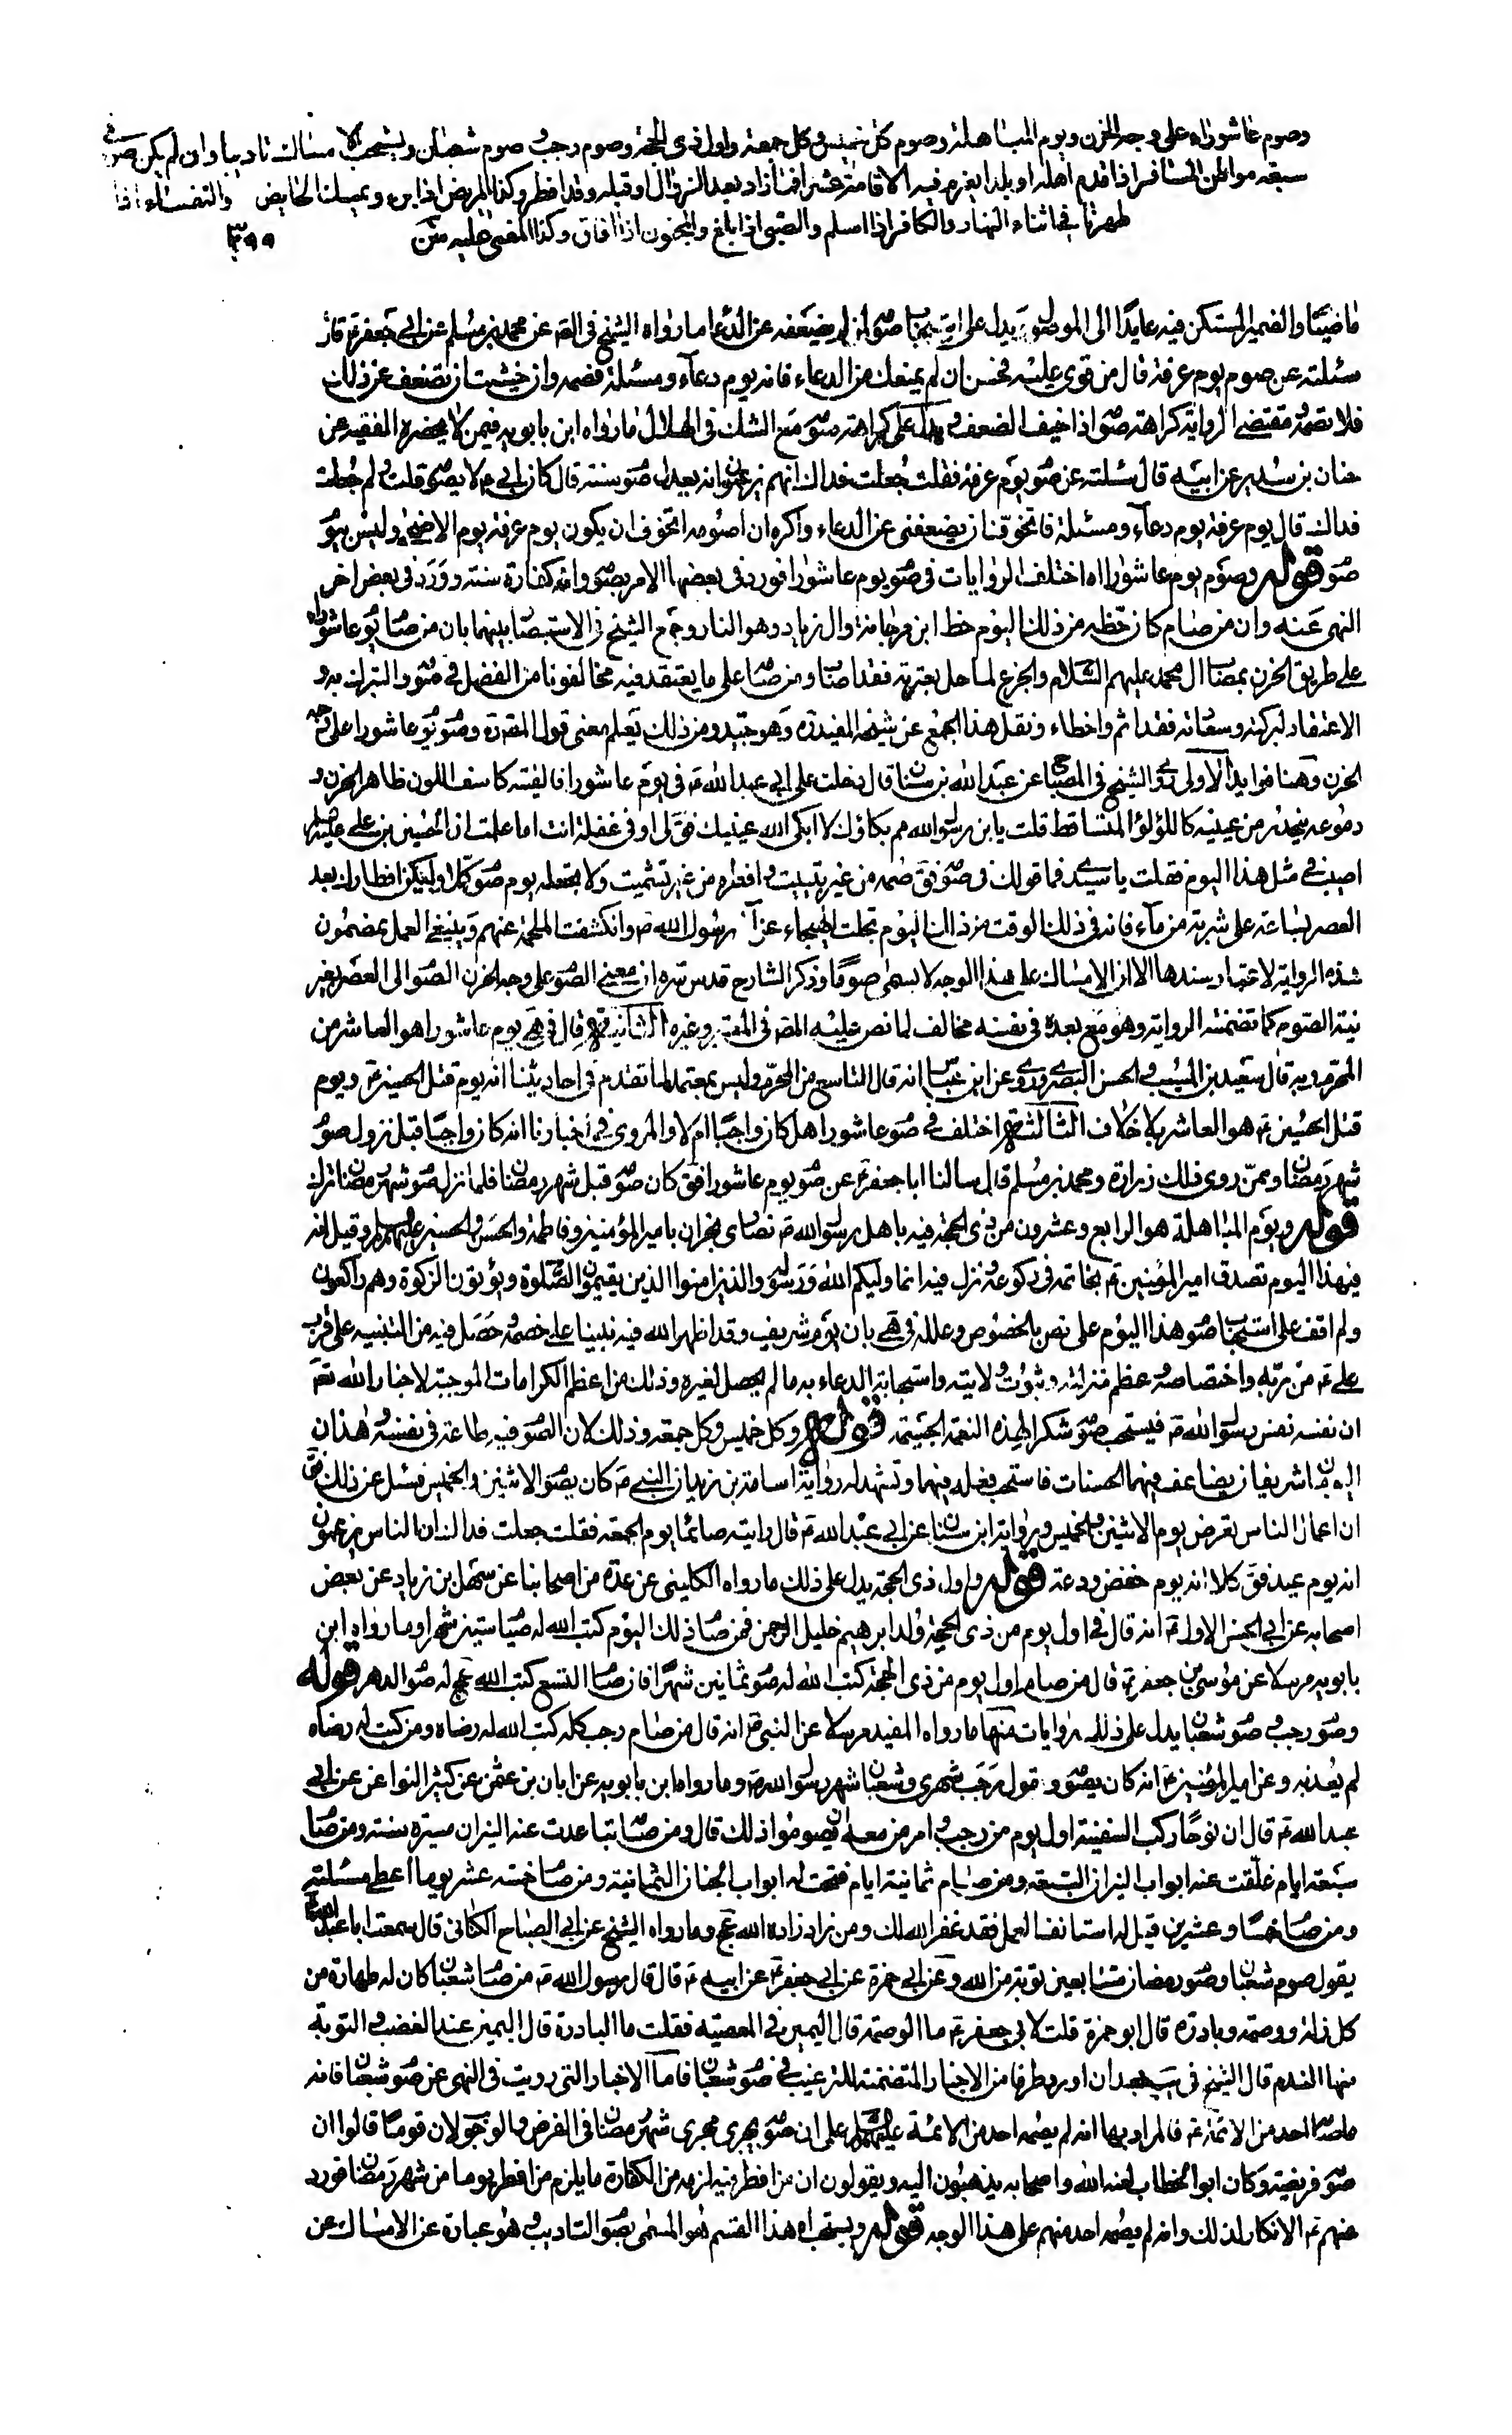 وصوم عاشوراء على وجه الحزن ويوم المباهلة وصوم كل خميس وكل جمعة واول ذى الحجة وصوم رجب وصوم شعبان ويستحب الامساك تاديبا وان لم يكن صوما فى
سبعة مواطن المسافر اذا قدم اهله او بلدا يعزم فيه الاقامة عشرا فما زاد بعد الزوال او قبله وقد افطر وكذا المريض اذا برء ويمسك الحايض والنفساء اذا
طهرتا فى اثناء النهار والكافر اذا اسلم والصبى اذا بلغ والمجنون اذا افاق وكذا المغمى عليه
ماضيا والضمير المستكن فيه عايدا الى الموصول ويدل على استحباب صو لمن لم يضعفه عن الدعا ما رواه الشيخ فى الصه عن محمد بن مسلم عن ابى جعفر ع قال
سئلته عن صوم يوم عرفة قال من قوى عليه فحسن ان لم يمنعك من الدعاء فانه يوم دعاء ومسئلة فصمه وان خشيت ان تضعف عن ذلك
فلا تصمه ومقتضى الرواية كراهة صو اذا خيف الضعف ويدل على كراهة صو مع الشك فى الهلال ما رواه ابن بابويه فيمن لا يحضره الفقيه عن
حنان بن سدير عن ابيه قال سئلته عن صو يوم عرفة فقلت جعلت فداك انهم يزعمون انه يعدل صو سنة قال كان ابى ع لا يصو قلت ولم جعلت
فداك قال يوم عرفة يوم دعاء ومسئلة فاتخوف ان يضعفنى عن الدعاء واكره ان اصومه اتخوف ان يكون يوم عرفة يوم الاضحى وليس بيو
صو قوله وصوم يوم عاشوراء اه اختلف الروايات فى صو يوم عاشورا فورد فى بعضها الامر بصو وانه كفارة سنة وورد فى بعض اخر
النهى عنه وان من صام كان حظه من ذلك اليوم حظ ابن مرجانة وال زياد وهو النار وجمع الشيخ فى الاستبصا بينهما بان من صا يو عاشورا
على طريق الحزن بمصاب ال محمد عليهم السلام والجزع لما حل بعترته فقد اصاب ومن صا على ما يعتقد فيه مخالفونا من الفضل فى صو والتبرك به و
الاعتقاد لبركته وسعادته فقد اثم واخطاء ونقل هذا الجمع عن شيخه المفيد ره وهو جيد ومن ذلك يعلم معنى قول المص ره وصو يو عاشورا على وجه
الحزن وهنا فوايد الاولى روى الشيخ فى المصباح عن عبد الله بن سنان قال دخلت على ابى عبد الله ع فى يوم عاشورا فالفيته كاسف اللون ظاهر الحزن و
دموعه ينحدر من عينيه كاللؤلؤ المتساقط قلت يا بن رسول الله مم بكاؤك لا ابكى الله عينيك فق لى او فى غفلة انت اما علمت ان الحسين بن على عليه السلم
اصيب فى مثل هذا اليوم فقلت يا سيدى فما قولك فى صو فق صمه من غير تبييت وافطره من غير تشميت ولا تجعله يوم صو كملا وليكن افطارك بعد
العصر بساعة على شربة من ماء فانه فى ذلك الوقت من ذلك اليوم تجلت الهيجاء عن آل رسول الله ص وانكشفت الملحمة عنهم وينبغى العمل بمضمون
هذه الرواية لاعتبار سندها الا ان الامساك على هذا الوجه لا يسمى صوما وذكر الشارح قدس سره ان معنى الصو على وجه الحزن الصو الى العصر بغير
نية الصوم كما تضمنته الرواية وهو مع بعده فى نفسه مخالف لما نص عليه المص فى المعتبر وغيره الثانية قال فى هى يوم عاشورا هو العاشر من
المحرم وبه قال سعيد بن المسيب والحسن البصرى وروى عن ابن عباس انه قال التاسع من المحرم وليس بمعتمد لما تقدم فى احاديثنا انه يوم قتل الحسين ع ويوم
قتل الحسين ع هو العاشر بلا خلاف الثالثة اختلف فى صو عاشورا هل كان واجبا ام لا والمروى فى اخبارنا انه كان واجبا قبل نزول صو
شهر رمضان وممن روى ذلك زرارة ومحمد بن مسلم قال سالنا ابا جعفر ع عن صو يوم عاشورا فق كان صو قبل شهر رمضان فلما نزل صو شهر رمضان ترك
قوله ويوم المباهلة هو الرابع وعشرون من ذى الحجة فيه باهل رسول الله ص نصارى نجران بامير المؤمنين وفاطمة والحسن والحسين عليهم السلم وقيل انه
فى هذا اليوم تصدق امير المؤمنين ع بخاتمه فى ركوعه ونزل فيه انما وليكم الله ورسوله والذين امنوا الذين يقيمون الصلوة ويؤتون الزكوة وهم راكعون
ولم اقف على استحباب صو هذا اليوم على نص بالخصوص وعلله فى هى بان يوم شريف وقد اظهر الله فيه نبينا على خصمه وحصل فيه من التنبيه على قرب
على ع من ربه واختصاصه وعظم منزلته وثبوت ولايته واستجابة الدعاء به ما لم يحصل لغيره وذلك من اعظم الكرامات الموجبة لاخبار الله تعم
ان نفسه نفس رسول الله ص فيستحب صو شكرا لهذه النعمة الجسيمة قوله وكل خميس وكل جمعة وذلك لان الصو فيه طاعة فى نفسه وهذان
اليومان شريفان يضاعف فيهما الحسنات فاستحب فعله فيهما وتشهد له رواية اسامة بن زيد ان النبى ص كان يصو الاثنين والخميس فسئل عن ذلك فق
ان اعمال الناس تعرض يوم الاثنين والخميس ورواية ابن سنان عن ابى عبد الله ع قال رايته صائما يوم الجمعة فقلت جعلت فداك ان الناس يزعمون
انه يوم عيد فق كلا انه يوم خفض ودعة قوله واول ذى الحجة يدل على ذلك ما رواه الكلينى عن عدة من اصحابنا عن سهل بن زياد عن بعض
اصحابه عن ابى الحسن الاول ع انه قال فى اول يوم من ذى الحجة ولد ابرهيم خليل الرحمن فمن صا ذلك اليوم كتب الله له صيا ستين شهرا وما رواه ابن
بابويه مرسلا عن موسى بن جعفر ع قال من صام اول يوم من ذى الحجة كتب الله له صو ثمانين شهرا فان صا التسع كتب الله عج له صو الدهر قوله
وصو رجب وصو شعبا يدل على ذلك روايات منها ما رواه المفيد مرسلا عن النبى ص انه قال من صام رجب كله كتب الله له رضاه ومن كتب له رضاه
لم يعذبه وعن امير المؤمنين ع انه كان يصو ويقول رجب شهرى وشعبان شهر رسول الله ص وما رواه ابن بابويه عن ابان بن عثمن عن كثير النوا عن ابى
عبد الله ع قال ان نوحا ركب السفينة اول يوم من رجب وامر من معه ان يصوموا ذلك قال ومن صا تباعدت عنه النيران مسيرة سنة ومن صا
سبعة ايام غلقت عنه ابواب النيران السبعة ومن صام ثمانية ايام فتحت له ابواب الجنان الثمانية ومن صا خمسة عشر يوما اعطى مسئلته
ومن صا خمسا وعشرين قيل له استانف العمل فقد غفر الله لك ومن زاد زاده الله عج وما رواه الشيخ عن ابى الصباح الكنانى قال سمعت ابا عبد الله ع
يقول صوم شعبان وصو رمضان متتابعين توبة من الله وعن ابى حمزة عن ابى جعفر ع عن ابيه ع قال قال رسول الله ص من صا شعبان كان له طهارة من
كل زلة ووصمة وبادرة قال ابو حمزة قلت لابى جعفر ع ما الوصمة قال اليمين فى المعصية فقلت ما البادرة قال اليمين عند الغضب والتوبة
منها الندم قال الشيخ فى يب بعد ان اورد طرفا من الاخبار المتضمنة للترغيب فى صو شعبان فاما الاخبار التى رويت فى النهى عن صو شعبان فانه
ما صا احد من الائمة ع فالمراد بها انه لم يصمه احد من الائمة عليهم السلم على ان صو يجرى مجرى شهر رمضان فى الفرض والوجو لان قوما قالوا ان
صو فريضة وكان ابو الخطاب لعنه الله واصحابه يذهبون اليه ويقولون ان من افطر فيه لزمه من الكفارة ما يلزم من افطر يوما من شهر رمضان فورد
عنهم ع الانكار لذلك وانه لم يصمه احد منهم على هذا الوجه قوله ويستحب اه هذا القسم هو المسمى بصو التاديب وهو عبارة عن الامساك عن